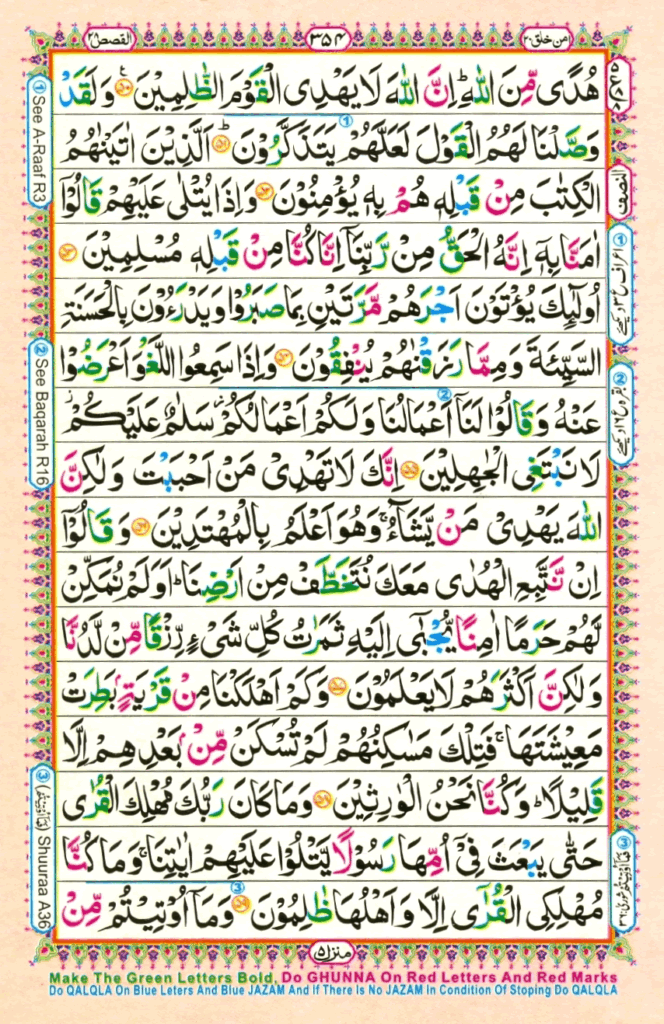 امن خلق ۲۰
۳۵۴
القصص ۲۸
هُدًى مِّنَ اللّٰهِ ؕ اِنَّ اللّٰهَ لَا يَهْدِى الْقَوْمَ الظّٰلِمِيْنَ ۵۰ وَلَقَدْ
وَصَّلْنَا لَهُمُ الْقَوْلَ لَعَلَّهُمْ يَتَذَكَّرُوْنَ ۵۱ ؕ اَلَّذِيْنَ اٰتَيْنٰهُمُ
الْكِتٰبَ مِنْ قَبْلِهٖ هُمْ بِهٖ يُؤْمِنُوْنَ ۵۲ وَاِذَا يُتْلٰى عَلَيْهِمْ قَالُوْٓا
اٰمَنَّا بِهٖٓ اِنَّهُ الْحَقُّ مِنْ رَّبِّنَآ اِنَّا كُنَّا مِنْ قَبْلِهٖ مُسْلِمِيْنَ ۵۳
اُولٰٓئِكَ يُؤْتَوْنَ اَجْرَهُمْ مَّرَّتَيْنِ بِمَا صَبَرُوْا وَيَدْرَءُوْنَ بِالْحَسَنَةِ
السَّيِّئَةَ وَمِمَّا رَزَقْنٰهُمْ يُنْفِقُوْنَ ۵۴ وَاِذَا سَمِعُوا اللَّغْوَ اَعْرَضُوْا
عَنْهُ وَقَالُوْا لَنَآ اَعْمَالُنَا وَلَكُمْ اَعْمَالُكُمْ سَلٰمٌ عَلَيْكُمْ
لَا نَبْتَغِى الْجٰهِلِيْنَ ۵۵ اِنَّكَ لَا تَهْدِىْ مَنْ اَحْبَبْتَ وَلٰكِنَّ
اللّٰهَ يَهْدِىْ مَنْ يَّشَآءُ ۚ وَهُوَ اَعْلَمُ بِالْمُهْتَدِيْنَ ۵۶ وَقَالُوْٓا
اِنْ نَّتَّبِعِ الْهُدٰى مَعَكَ نُتَخَطَّفْ مِنْ اَرْضِنَا ؕ اَوَلَمْ نُمَكِّنْ
لَّهُمْ حَرَمًا اٰمِنًا يُّجْبٰٓى اِلَيْهِ ثَمَرٰتُ كُلِّ شَىْءٍ رِّزْقًا مِّنْ لَّدُنَّا
وَلٰكِنَّ اَكْثَرَهُمْ لَا يَعْلَمُوْنَ ۵۷ وَكَمْ اَهْلَكْنَا مِنْ قَرْيَةٍۢ بَطِرَتْ
مَعِيْشَتَهَا ۚ فَتِلْكَ مَسٰكِنُهُمْ لَمْ تُسْكَنْ مِّنْۢ بَعْدِهِمْ اِلَّا
قَلِيْلًا ؕ وَكُنَّا نَحْنُ الْوٰرِثِيْنَ ۵۸ وَمَا كَانَ رَبُّكَ مُهْلِكَ الْقُرٰى
حَتّٰى يَبْعَثَ فِىْٓ اُمِّهَا رَسُوْلًا يَّتْلُوْا عَلَيْهِمْ اٰيٰتِنَا ۚ وَمَا كُنَّا
مُهْلِكِى الْقُرٰٓى اِلَّا وَاَهْلُهَا ظٰلِمُوْنَ ۵۹ وَمَآ اُوْتِيْتُمْ مِّنْ
النصف
① See A-Raaf R3
② See Baqarah R16
③ Shuuraa A36
منزل ۵
Make The Green Letters Bold, Do GHUNNA On Red Letters And Red Marks
Do QALQLA On Blue Leters And Blue JAZAM And If There Is No JAZAM In Condition Of Stoping Do QALQLA